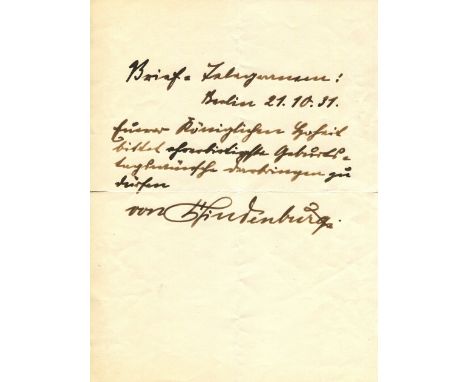 Brief-Telegramm!
Berlin 21.10.31.
Eurer Königlichen Hoheit
bittet ehrerbietigste Geburts-
tagswünsche darbringen zu
dürfen
von Hindenburg.